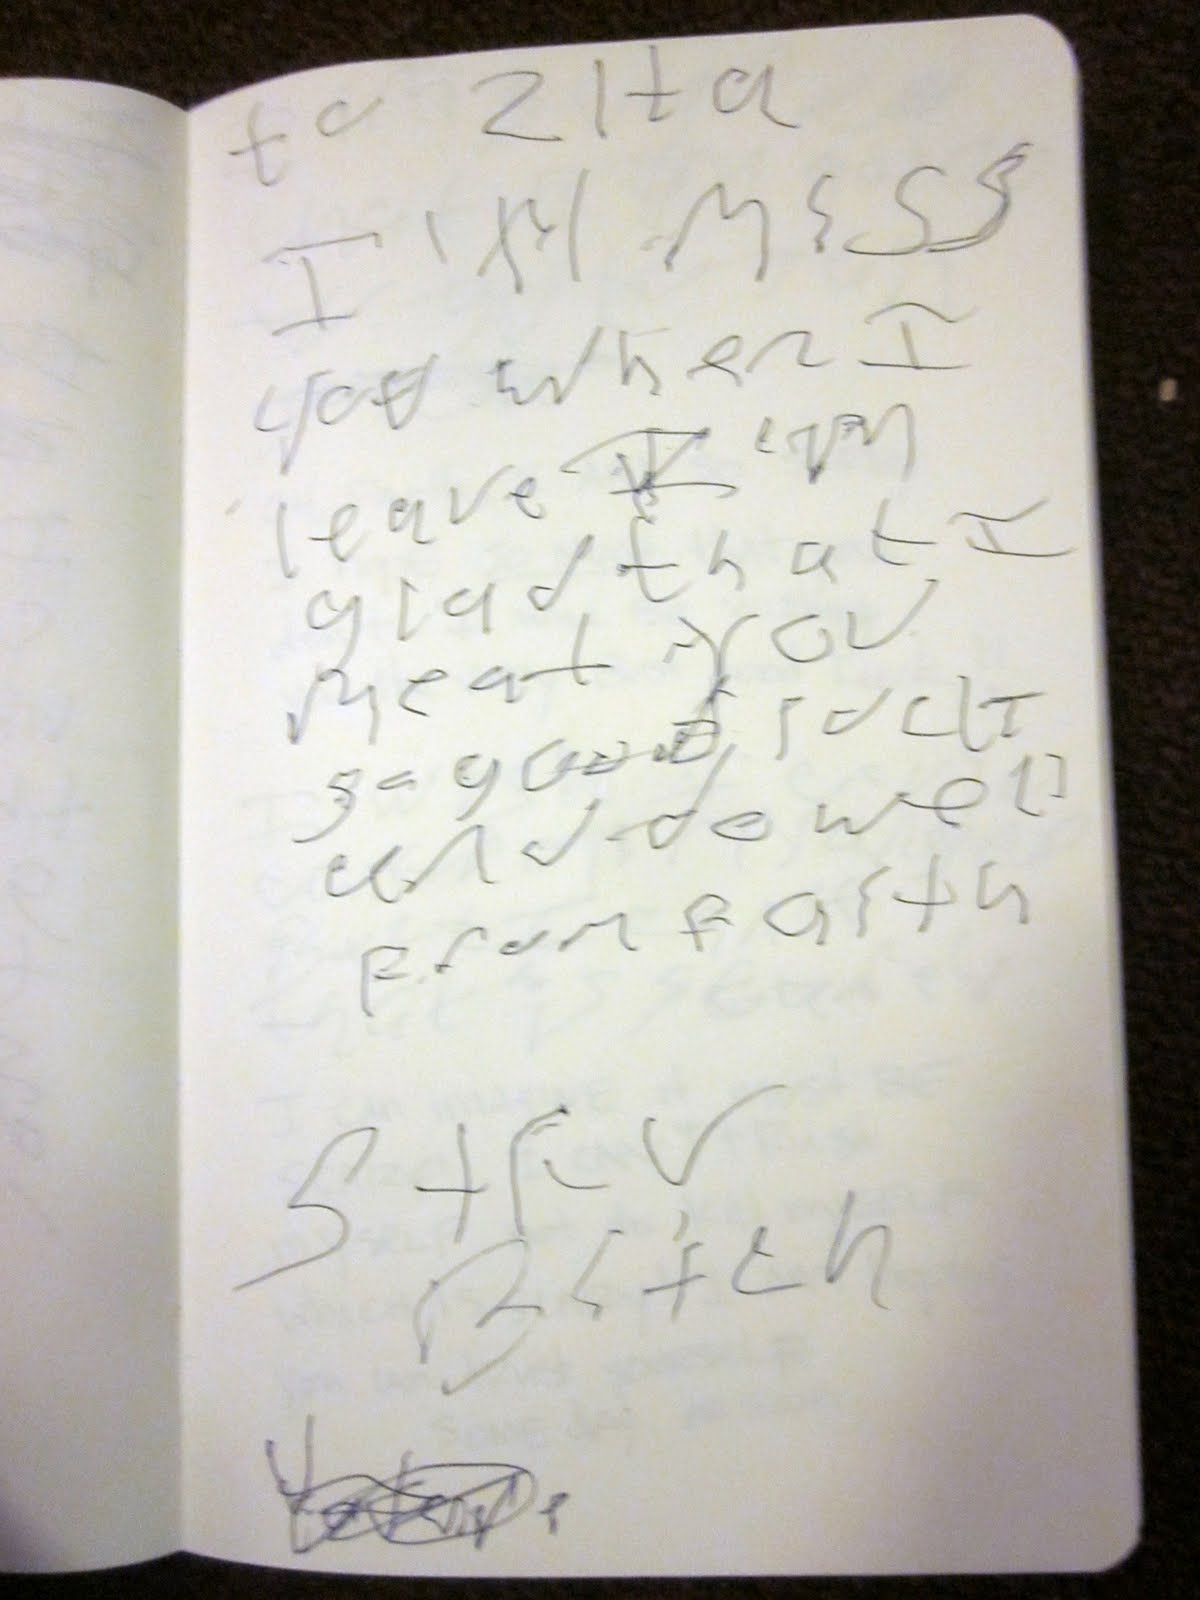 to zita
I'M MISS
you when I
leave I'M
glad that I
Meat you
so good luck
and do well
from Faith
Bitch